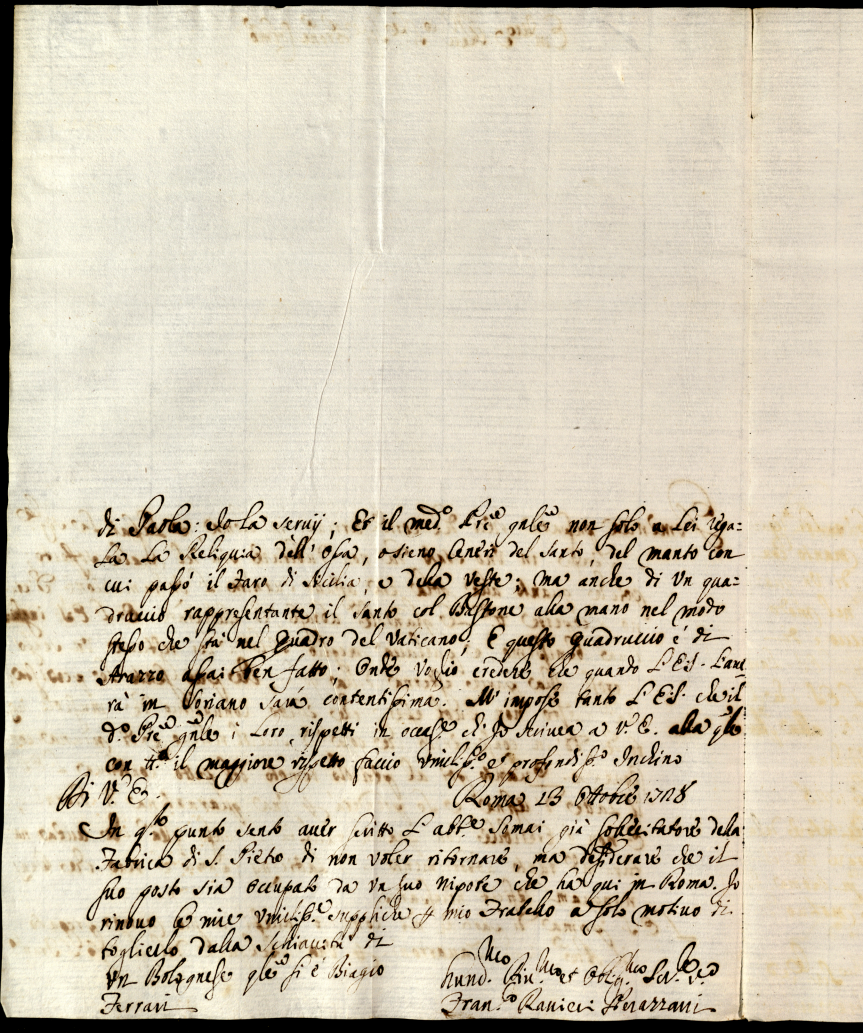 di Paola: Io La servij; Et il med.º Pre gnle non solo a Lei rega=
La La Reliquia dell' ossa, o sieno Ceneri del Santo, del manto con
cui passò il Faro di Sicilia, e della veste; ma anche di un qua=
druccio rappresentante il Santo col Bastone alla mano nel modo
stesso che stà nel Quadro del Vaticano; E questo quadruccio è di
Arazzo assai ben fatto; Onde voglio credere che quando L'E.S. L'au
rà in Soriano sarà contentissima. M'impose tanto L'E.S. che il
d.º Pre gnle i Loro rispetti in occas.e ch'Io scrivea a V.E. alla qle
con tt.º il maggiore rispetto faccio umiliss.º et profondiss.º Inchino
Di V.E. Roma 23 Ottobre 1728
In q.sto punto sento aver scritto L'abb.e Somai già sollecitatore della
Fabrica di S. Pietro di non voler ritornare, ma desiderare che il
suo posto sia occupato da un suo nipote che ha qui in Roma. Io
rinuovo le mie umiliss.e suppliche p mio Fratello a solo motivo di
toglierlo dalla schiavitù di
un Bolognese qle si è Biagio
Ferrari
hum.mo Div.mo et Obblig.mo Ser.re v.º
Fran.º Ranieri